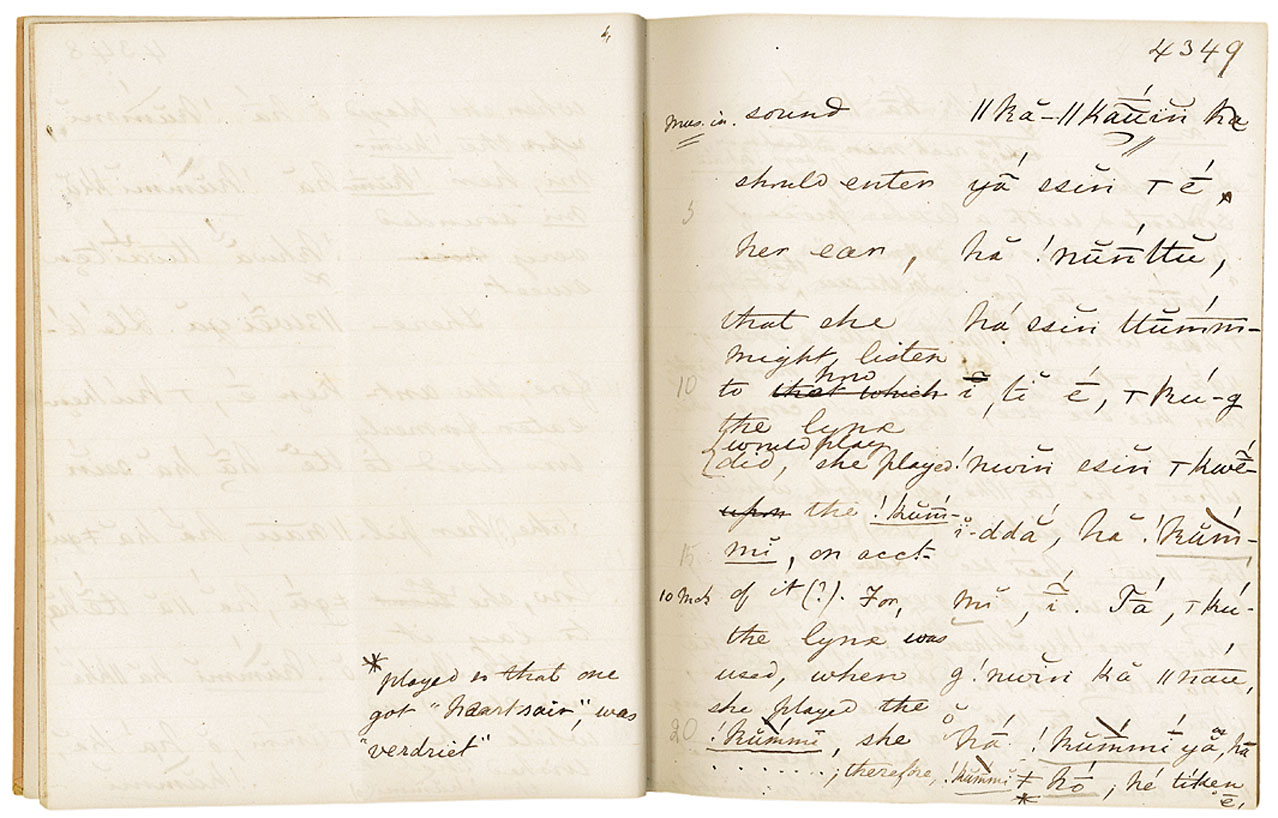 *played is that one
got "haartsair", was
"verdriet"
4349
Mus. in. sound ǁkă-ǁkáŭĭṅ kă
should enter yá̄ ssĭṅ ⊤ḗ,
5
her ear, hă !nŭṅttŭ,
that she há ssĭṅ ttŭ́mm-
might listen
how
10 to that which ĭ, tĭ ḗ, ⊤kú-g
the lynx
would play
did, she played !nwĭṅ esĭṅ ⊤kwḗ-
upon the !kŭḿ- ĭ-ddā́, hă !kŭḿ-
15 mĭ, on acct.
10 Mch of it (?). For, mĭ, ī́. Tá, ⊤kú-
the lynx was
used, when g!nwĭṅ kă ǁnáŭ,
she played the
20 !kŭmmĭ, she há !kŭmmĭ yă, hă
. . . . . . . , therefore, !kŭmmĭ ǂkó; hé tíken
* ē,